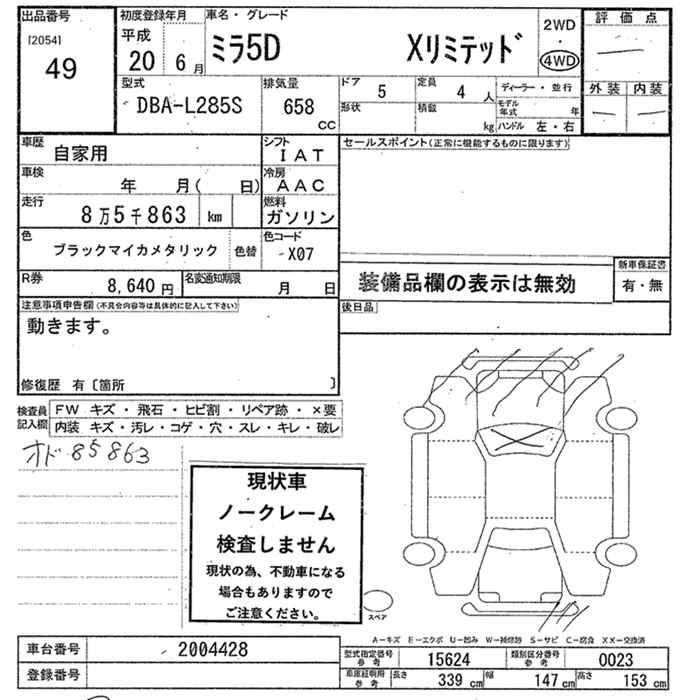 出品番号
[2054]
49
初度登録年月
平成
20 6月
車名・グレード
ミラ5D Xリミテッド
2WD
・
4WD
評価点
外装 内装
型式
DBA-L285S
排気量
658
CC
ドア 5
定員 4人
形状
積載 kg
ディーラー・並行
モデル年式 年
ハンドル 左・右
車歴
自家用
シフト
IAT
車検
年 月( 日)
冷房
AAC
走行
8万5千863 km
燃料
ガソリン
色
ブラックマイカメタリック
色替
色コード
X07
R券
8,640円
名変通知期限
月 日
セールスポイント(正常に機能するものに限ります)
装備品欄の表示は無効
新車保証書
有・無
後日品
注意事項申告欄(不具合内容は具体的に記入して下さい)
動きます。
修復歴 有〔箇所 〕
検査員記入欄
FW キズ・飛石・ヒビ割・リペア跡・×要
内装 キズ・汚レ・コゲ・穴・スレ・キレ・破レ
オド 85863
現状車
ノークレーム
検査しません
現状の為、不動車になる
場合もありますので
ご注意ください。
スペア
A-キズ E-エクボ U-凹み W-補修跡 S-サビ C-腐食 XX-交換済
車台番号
2004428
登録番号
型式指定番号
参考
15624
類別区分番号
参考
0023
車庫証明用
参考
長さ 339cm
幅 147cm
高さ 153cm